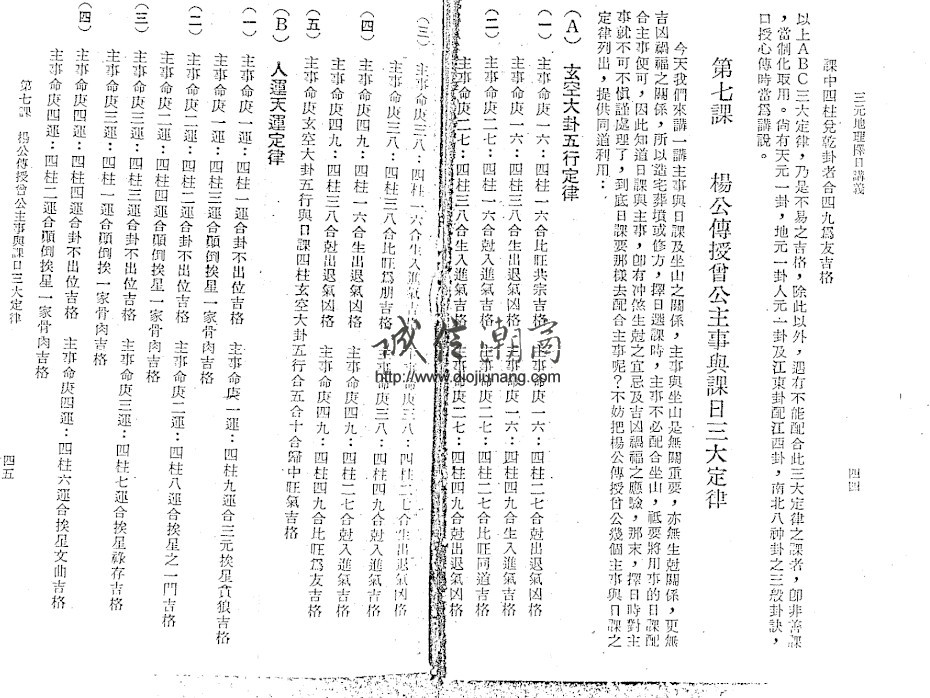 三元地理擇日講義
四四
課中四柱兌乾卦者合四九為友吉格
以上ＡＢＣ三大定律，乃是不易之吉格，除此以外，遇有不能配合此三大定律之課者，卽非善課
，當制化取用。尙有天元一卦，地元一卦人元一卦及江東卦配江西卦，南北八神卦之三般卦訣，
口授心傳時當爲講說。
第七課　楊公傳授曾公主事與課日三大定律
今天我們來講一講主事與日課及坐山之關係，主事與坐山是無關重要，亦無生尅關係，更無
吉凶禍福之關係，所以造宅葬墳或修方，擇日選課時，主事不必配合坐山，祗要將用事的日課配
合主事便可，因此知道日課與主事，卽有冲煞生尅之宜忌及吉凶禍福之應驗，那末，擇日時對主
事就不可不愼謹處理了，到底日課要那樣去配合主事呢？不妨把楊公傳授曾公幾個主事與日課之
定律列出，提供同道利用：
（Ａ）　玄空大卦五行定律
（一）　主事命庚一六：四柱一六合比旺共宗吉格　主事命庚一六：四柱二七合尅出退氣凶格
主事命庚一六：四柱三八合生出退氣凶格　主事命庚一六：四柱四九合生入進氣吉格
（二）　主事命庚二七：四柱一六合尅入進氣吉格　主事命庚二七：四柱二七合比旺同道吉格
主事命庚二七：四柱三八合生入進氣吉格　主事命庚二七：四柱四九合尅出退氣凶格
（三）　主事命庚三八：四柱一六合生入進氣吉格　主事命庚三八：四柱二七合生出退氣凶格
主事命庚三八：四柱三八合比旺爲朋吉格　主事命庚三八：四柱四九合尅入進氣吉格
（四）　主事命庚四九：四柱一六合生出退氣凶格　主事命庚四九：四柱二七合尅入進氣吉格
主事命庚四九：四柱三八合尅出退氣凶格　主事命庚四九：四柱四九合比旺爲友吉格
（五）　主事命庚玄空大卦五行與日課四柱玄空大卦五行合五合十合歸中旺氣吉格
（Ｂ）　人運天運定律
（一）　主事命庚一運：四柱一運合卦不出位吉格　主事命庚一運：四柱九運合三元挨星貪狼吉格
（二）　主事命庚一運：四柱三運合顚倒挨星一家骨肉吉格
主事命庚二運：四柱二運合卦不出位吉格　主事命庚二運：四柱八運合挨星之一門吉格
主事命庚二運：四柱四運合顚倒挨星一家骨肉吉格
（三）　主事命庚三運：四柱三運合卦不出位吉格　主事命庚三運：四柱七運合挨星祿存吉格
主事命庚三運：四柱一運合顚倒挨星一家骨肉吉格
（四）　主事命庚四運：四柱四運合卦不出位吉格　主事命庚四運：四柱六運合挨星文曲吉格
主事命庚四運：四柱二運合顚倒挨星一家骨肉吉格
第七課　楊公傳授曾公主事與課日三大定律
四五
诚信潮商